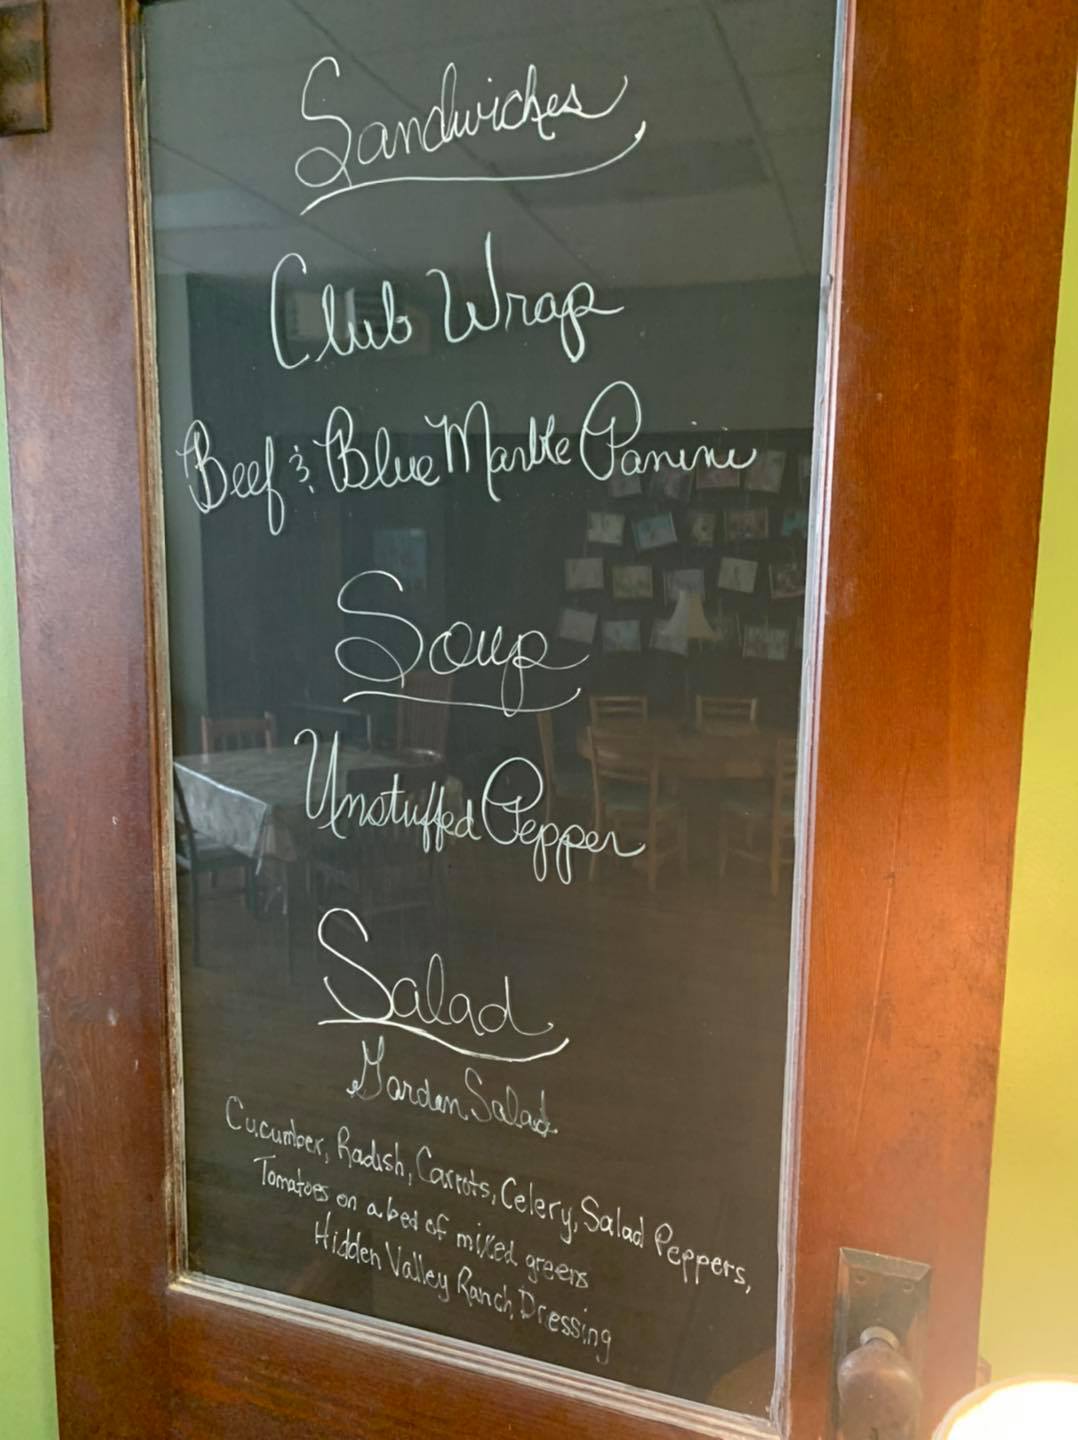 Sandwiches
Club Wrap
Beef & Blue Marble Panini
Soup
Unstuffed Pepper
Salad
Garden Salad
Cucumber, Radish, Carrots, Celery, Salad Peppers,
Tomatoes on a bed of mixed greens
Hidden Valley Ranch Dressing